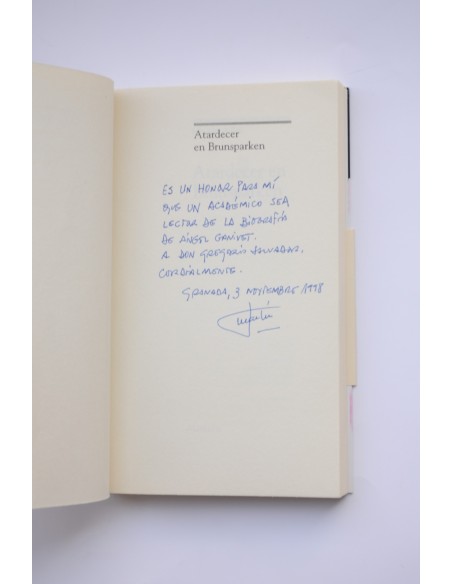 Atardecer
en Brunsparken
ES UN HONOR PARA MÍ
QUE UN ACADÉMICO SEA
LECTOR DE LA BIOGRAFÍA
DE ÁNGEL GANIVET.
A DON GREGORIO SALVADOR,
CORDIALMENTE.
GRANADA, 3 NOVIEMBRE 1998